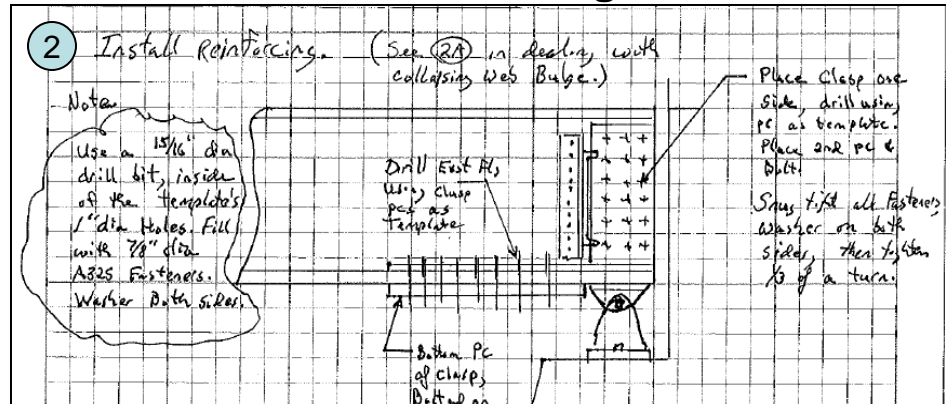 2 Install Reinforcing. (See 2A in dealing with
collapsing Web Bulge.)
Note
Use a 15/16" dia
drill bit, inside
of the template's
1" dia Holes. Fill
with 7/8" dia
A325 Fasteners.
Washer Both sides.
Drill Exist FL,
Using Clasp
pcs as
Template
Place Clasp one
side, drill using
pc as template.
Place 2nd pc &
Bolt.
Snug tight all Fasteners,
washer on both
sides, then tighten
1/3 of a turn.
Bottom PC
of Clasp,
Bolted on